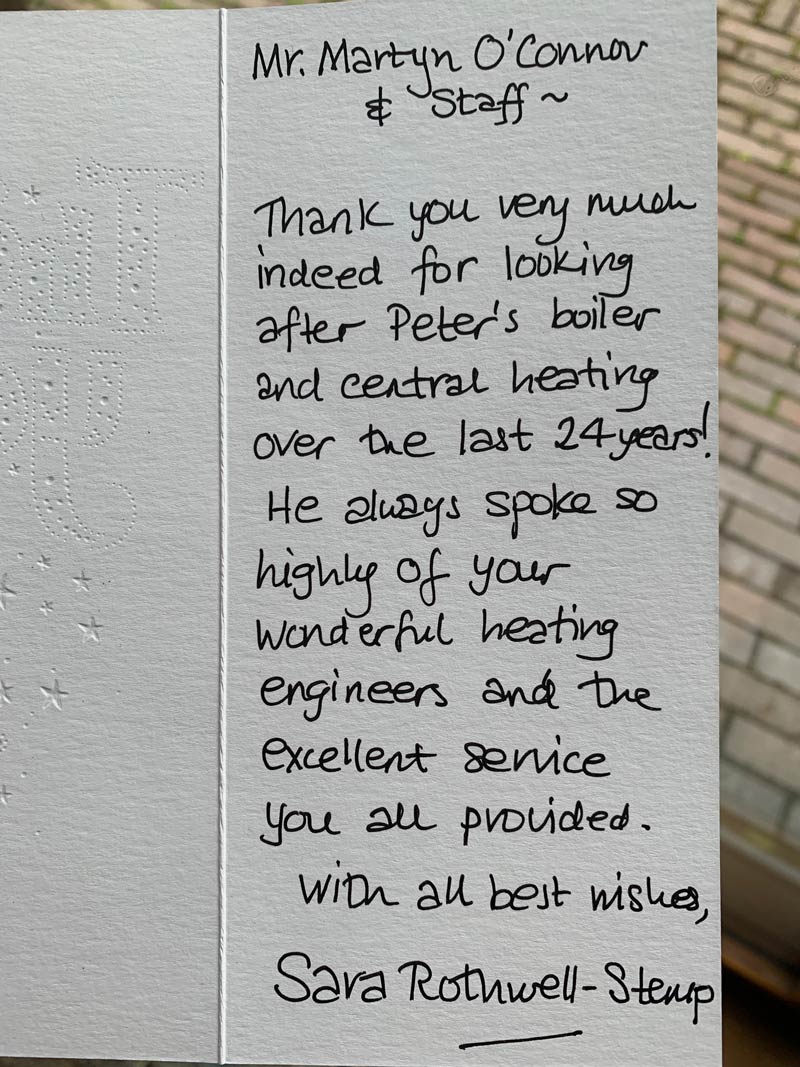 Mr. Martyn O'Connor
& Staff ~
Thank you very much
indeed for looking
after Peter's boiler
and central heating
over the last 24 years!
He always spoke so
highly of your
wonderful heating
engineers and the
excellent service
you all provided.
With all best wishes,
Sara Rothwell-Stemp